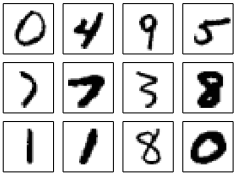 0 4 9 5
7 7 3 8
1 1 8 0